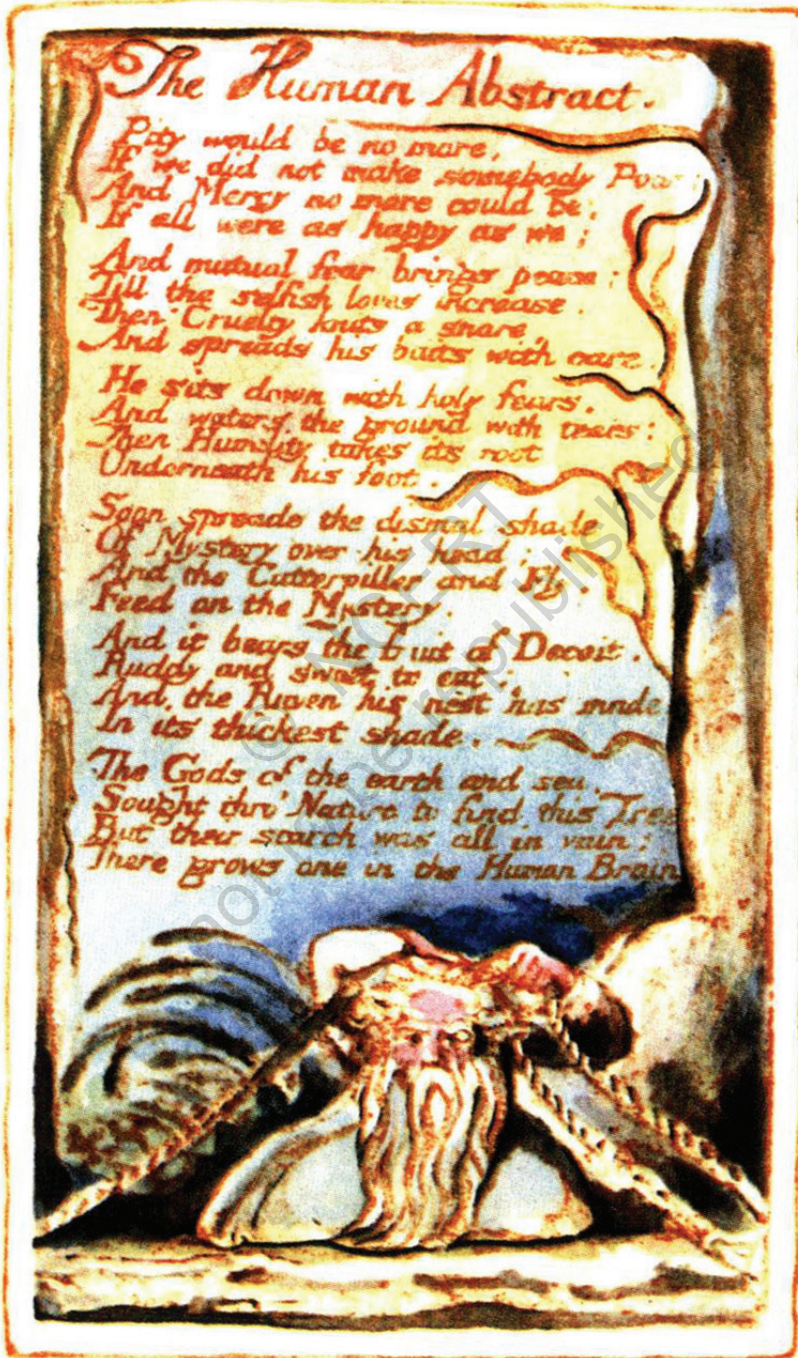 The Human Abstract.
Pity would be no more,
If we did not make somebody Poor:
And Mercy no more could be,
If all were as happy as we;
And mutual fear brings peace:
Till the selfish loves increase.
Then Cruelty knits a snare,
And spreads his baits with care.
He sits down with holy fears,
And waters the ground with tears:
Then Humility takes its root
Underneath his foot.
Soon spreads the dismal shade
Of Mystery over his head;
And the Catterpiller and Fly,
Feed on the Mystery.
And it bears the fruit of Deceit,
Ruddy and sweet to eat;
And the Raven his nest has made
In its thickest shade.
The Gods of the earth and sea,
Sought thro' Nature to find this Tree
But their search was all in vain:
There grows one in the Human Brain
© NCERT
not be republished